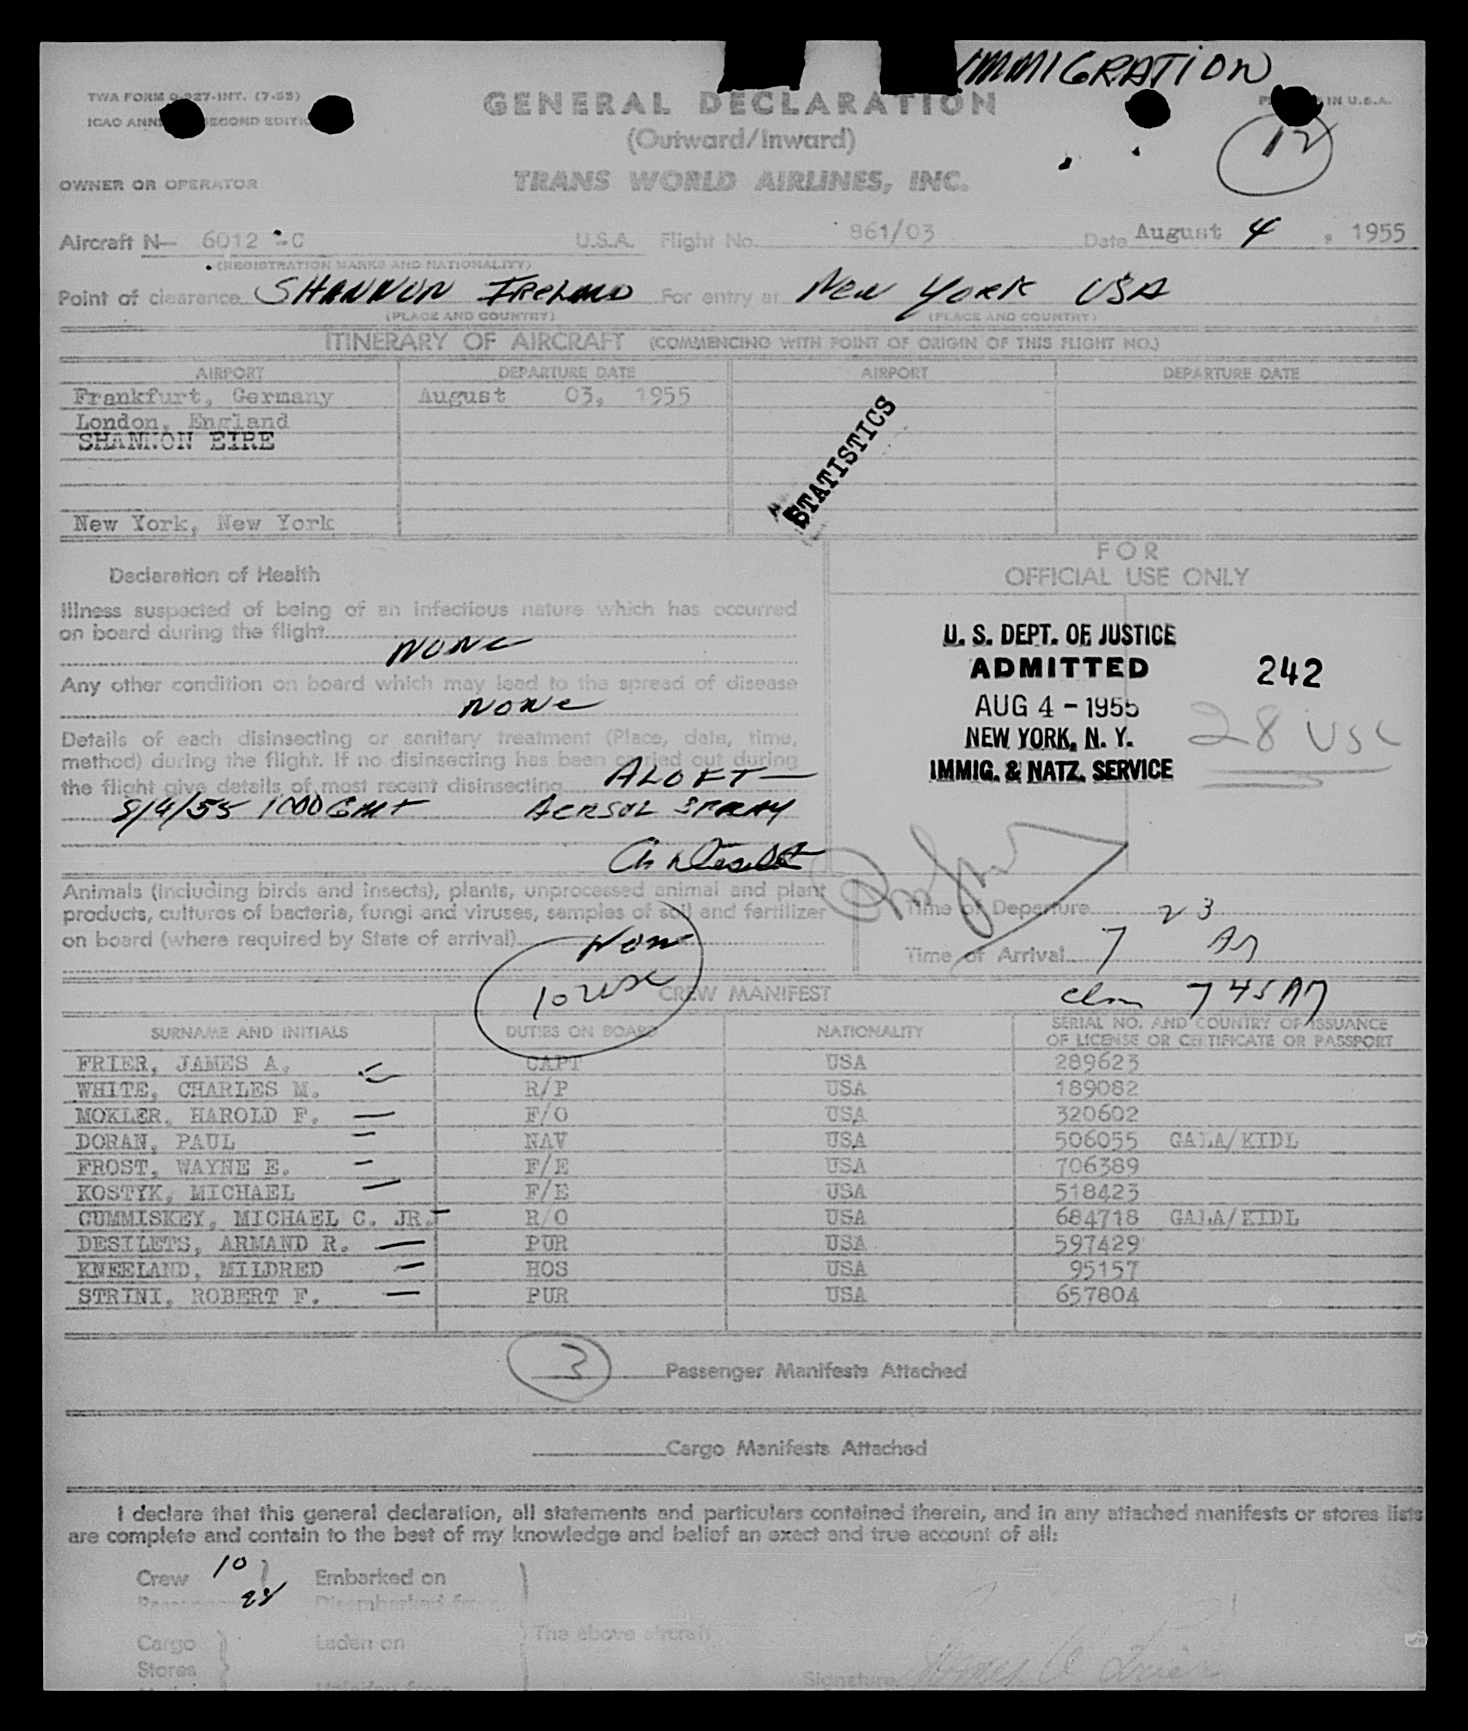 IMMIGRATION
TWA FORM O-227-INT. (7-53)
GENERAL DECLARATION
IN U.S.A.
ICAO SECOND
(Outward/Inward)
12
OWNER OR OPERATOR
TRANS WORLD AIRLINES, INC.
Aircraft N— 6012 -C U.S.A. Flight No. 861/03 Date August 4, 1955
(REGISTRATION MARKS AND NATIONALITY)
Point of clearance SHANNON IRELAND For entry at New York USA
(PLACE AND COUNTRY) (PLACE AND COUNTRY)
ITINERARY OF AIRCRAFT (COMMENCING WITH POINT OF ORIGIN OF THIS FLIGHT NO.)
AIRPORT DEPARTURE DATE AIRPORT DEPARTURE DATE
Frankfurt, Germany August 03, 1955
London, England
SHANNON EIRE
STATISTICS
New York, New York
FOR
OFFICIAL USE ONLY
Declaration of Health
Illness suspected of being of an infectious nature which has occurred
on board during the flight
NONE
Any other condition on board which may lead to the spread of disease
NONE
Details of each disinsecting or sanitary treatment (Place, date, time,
method) during the flight. If no disinsecting has been carried out during
the flight give details of most recent disinsecting ALOFT—
8/4/55 1000 GMT AERSOL SPRAY
U. S. DEPT. OF JUSTICE
ADMITTED 242
AUG 4 - 1955
NEW YORK, N. Y. 28 USC
IMMIG. & NATZ. SERVICE
Animals (including birds and insects), plants, unprocessed animal and plant
products, cultures of bacteria, fungi and viruses, samples of soil and fertilizer
on board (where required by State of arrival)
Time of Departure 23
Time of Arrival 7
10 USC
CREW MANIFEST
745 AM
SURNAME AND INITIALS DUTIES ON BOARD NATIONALITY SERIAL NO. AND COUNTRY OF ISSUANCE
OF LICENSE OR CERTIFICATE OR PASSPORT
FRIER, JAMES A. CAPT USA 289623
WHITE, CHARLES M. R/P USA 189082
MOKLER, HAROLD F. F/O USA 320602
DORAN, PAUL NAV USA 506055 GALA/KIDL
FROST, WAYNE E. F/E USA 706389
KOSTYK, MICHAEL F/E USA 518423
CUMMISKEY, MICHAEL C. JR. R/O USA 684718 GALA/KIDL
DESILETS, ARMAND R. PUR USA 597429
KNEELAND, MILDRED HOS USA 95157
STRINI, ROBERT F. PUR USA 657804
3 Passenger Manifests Attached
Cargo Manifests Attached
I declare that this general declaration, all statements and particulars contained therein, and in any attached manifests or stores lists
are complete and contain to the best of my knowledge and belief an exact and true account of all:
Crew 10 Embarked on
28
Cargo Laden on The above aircraft
Stores
Signature James A Frier